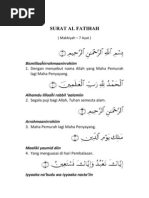 SURAT AL FATIHAH
( Makkiyah – 7 Ayat )
بِسْمِ اللَّهِ الرَّحْمَنِ الرَّحِيمِ
Bismillaahirrahmaanirrahiim
1. Dengan menyebut nama Allah Yang Maha Pemurah
lagi Maha Penyayang.
الْحَمْدُ لِلَّهِ رَبِّ الْعَالَمِينَ
Alhamdu lillaahi rabbil 'aalamiin
2. Segala puji bagi Allah, Tuhan semesta alam.
الرَّحْمَنِ الرَّحِيمِ
Arrahmaanirrahiim
3. Maha Pemurah lagi Maha Penyayang.
مَالِكِ يَوْمِ الدِّينِ
Maaliki yaumid diin
4. Yang menguasai di hari Pembalasan.
إِيَّاكَ نَعْبُدُ وَإِيَّاكَ نَسْتَعِينُ
Iyyaaka na'budu wa iyyaaka nasta'iin